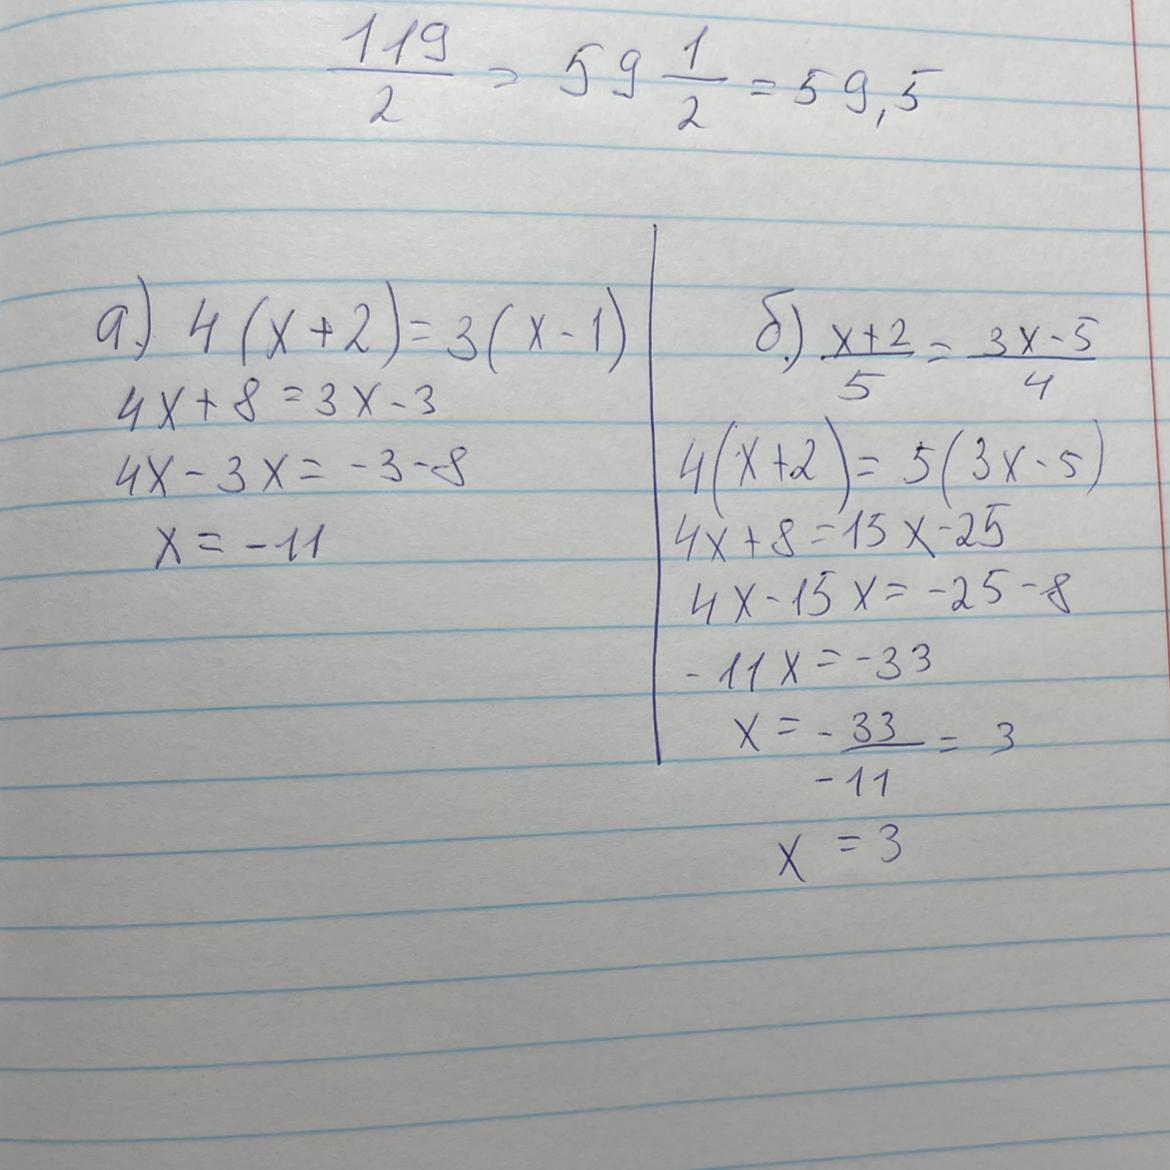 119/2 = 59 1/2 = 59,5
а) 4(x+2)=3(x-1)
4x+8=3x-3
4x-3x=-3-8
x=-11
б.) x+2/5 = 3x-5/4
4(x+2)=5(3x-5)
4x+8=15x-25
4x-15x=-25-8
-11x=-33
x=-33/-11=3
x=3